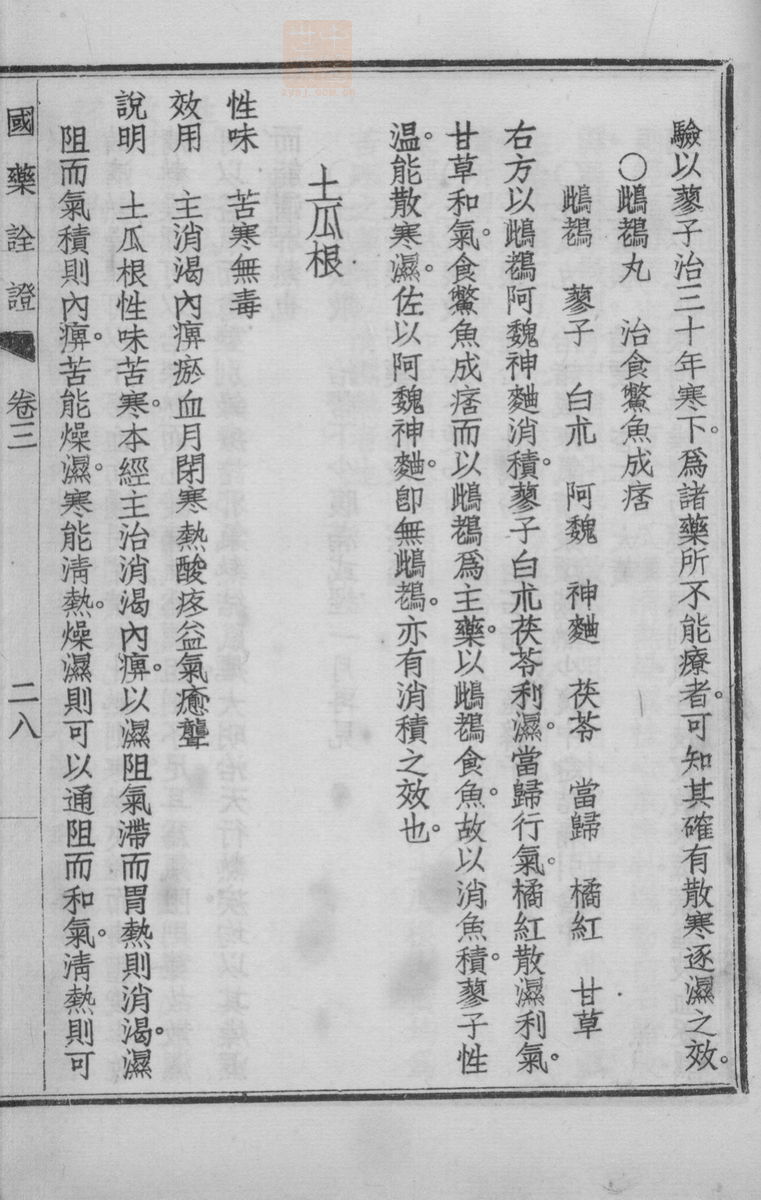 驗以蓼子治三十年寒下。爲諸藥所不能療者。可知其確有散寒逐濕之效。
○鴟鵂丸　治食鱉魚成痞
鴟鵂　蓼子　白朮　阿魏　神麯　茯苓　當歸　橘紅　甘草
右方以鴟鵂阿魏神麯消積。蓼子白朮茯苓利濕。當歸行氣。橘紅散濕利氣。
甘草和氣。食鱉魚成痞而以鴟鵂爲主藥。以鴟鵂食魚。故以消魚積。蓼子性
温。能散寒濕。佐以阿魏神麯。卽無鴟鵂。亦有消積之效也。
土瓜根
性味　苦寒無毒
效用　主消渴內痹瘀血月閉寒熱酸疼益氣癒聾
說明　土瓜根性味苦寒。本經主治消渴內痹。以濕阻氣滯而胃熱則消渴。濕
阻而氣積則內痹。苦能燥濕。寒能淸熱。燥濕則可以通阻而和氣。淸熱則可
國藥詮證　卷三　二八